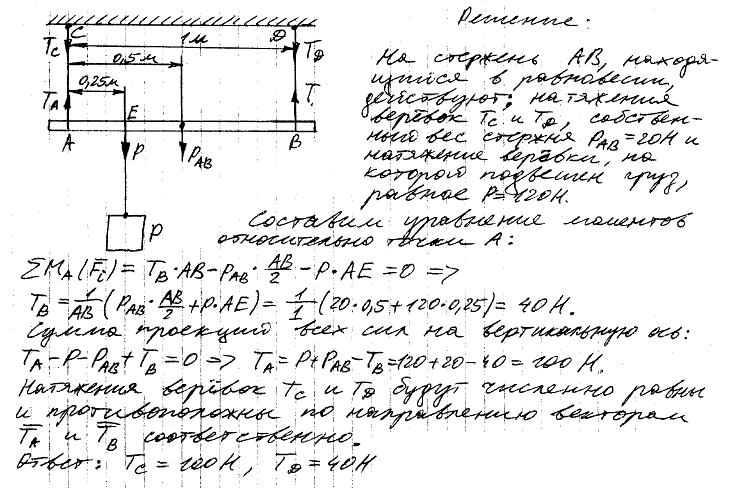 Решение:
C D
T_C 1м T_D
0,5м
0,25м
T_A T
E
A P P_AB B
P
На стержень AB, находя-
щийся в равновесии,
действуют: натяжения
верёвок T_C и T_D, собствен-
ный вес стержня P_AB=20Н и
натяжение верёвки, на
которой подвешен груз,
равное P=120Н.
Составим уравнение моментов
относительно точки A:
ΣM_A(F̄_i) = T_B·AB-P_AB·AB/2-P·AE=0 =>
T_B=1/AB(P_AB·AB/2+P·AE)=1/1(20·0,5+120·0,25)=40Н.
Сумма проекций всех сил на вертикальную ось:
T_A-P-P_AB+T_B=0=> T_A=P+P_AB-T_B=120+20-40=100 Н.
Натяжения верёвок T_C и T_D будут численно равны
и противоположны по направлению векторам
T̄_A и T̄_B соответственно.
Ответ: T_C=100Н, T_D=40Н